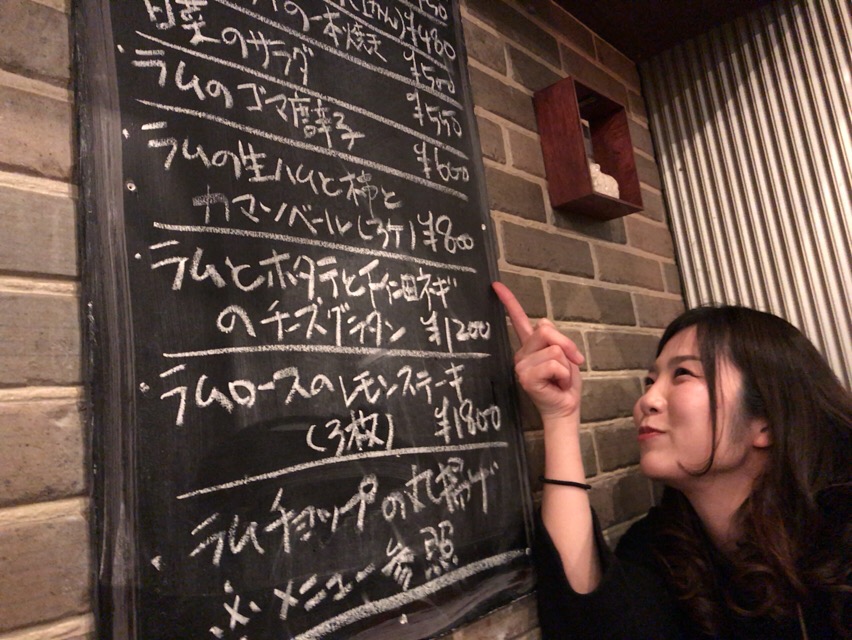 の一本焼き ¥480
のサラダ ¥500
ラムのゴマ唐辛子 ¥550
¥600
ラムの生ハムと柿と
カマンベール(3ケ) ¥800
ラムとホタテと千住ネギ
のチーズグラタン ¥1200
ラムロースのレモンステーキ
(3枚) ¥1800
ラムチョップの丸揚げ
※メニュー参照